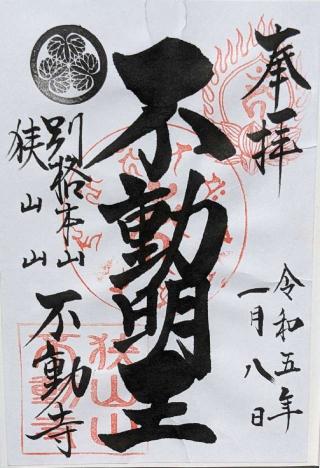 奉拝
令和五年
一月八日
不動明王
別格本山
狭山山
不動寺
狭山山
不動寺